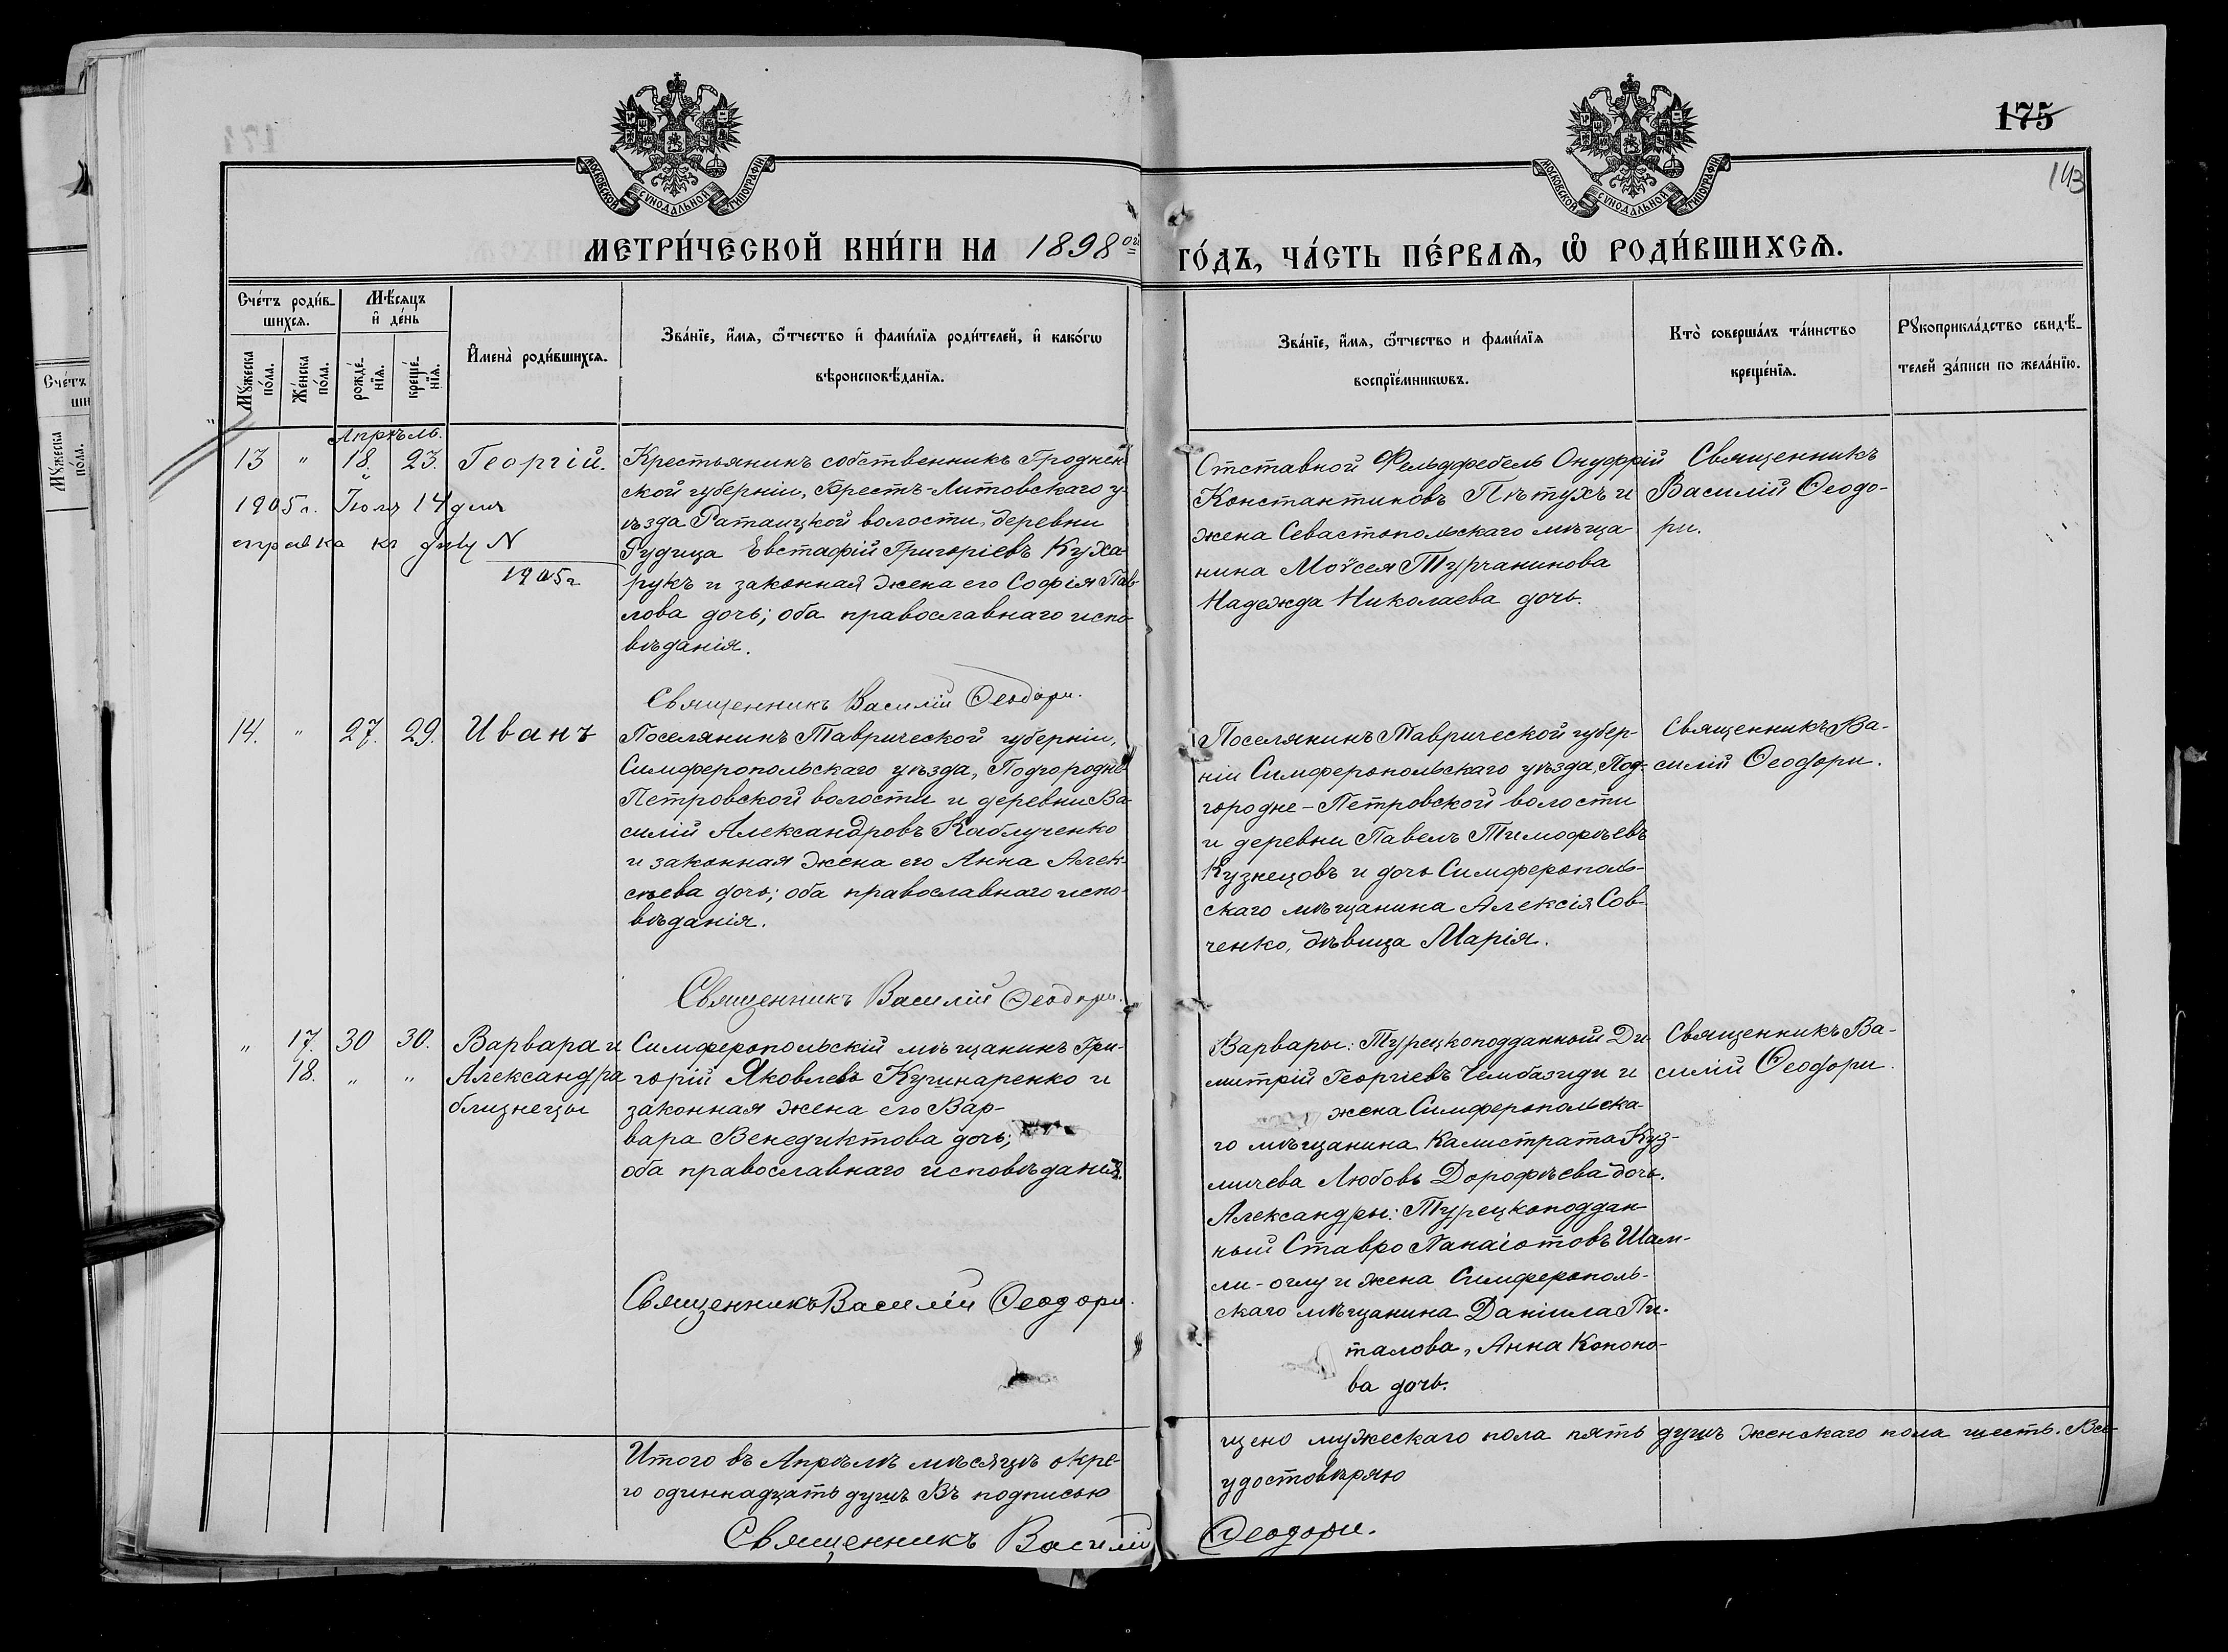 МОСКОВСКОЙ СѴНОДАЛЬНОЙ ТИПОГРАФІИ
МОСКОВСКОЙ СѴНОДАЛЬНОЙ ТИПОГРАФІИ
175
143
МЕТРИ́ЧЕСКОЙ КНИ́ГИ НА 1898ой ГО́ДЪ, ЧА́СТЬ ПЕ́РВАѦ, Ѡ҆ РОДИ́ВШИХСѦ.
Сче́тъ роди́в-
шихсѧ.
Мꙋ́жеска по́ла.
Же́нска по́ла.
Мѣ́сѧцъ
и҆ де́нь
рожде́-
нїѧ.
креще́-
нїѧ.
И҆мена̀ роди́вшихсѧ.
Зва́нїе, и҆́мѧ, ѻ҆́тчество и҆ фами́лїѧ роди́телей, и҆ како́гѡ
вѣроисповѣ́данїѧ.
Зва́нїе, и҆́мѧ, ѻ҆́тчество и фами́лїѧ
воспрїе́мникѡвъ.
Кто̀ соверша́лъ та́инство
креще́нїѧ.
Рꙋкоприкла́дство свидѣ́-
телей за́писи по жела́нїю.
Апрѣль.
13 " 18. 23. Георгій.
1905 г. Іюля 14 дня
справка къ дѣлу N
1905 г
Крестьянинъ собственникъ Гроднен-
ской губерніи, Брестъ-Литовскаго у-
ѣзда Ратаицкой волости, деревни
Рудица Евстафій Григоріевъ Куха-
рукъ и законная жена его Софія Пав-
лова дочь; оба православнаго испо-
вѣданія.
Священникъ Василій Ѳеодори.
Отставной Фельдфебель Онуфрій
Константиновъ Пѣтухъ и
жена Севастопольскаго мѣща-
нина Моѵсея Турчанинова
Надежда Николаева дочь.
Священникъ
Василій Ѳеодо-
ри.
14. " 27. 29. Иванъ
Поселянинъ Таврической губерніи,
Симферопольскаго уѣзда, Подгородне-
Петровской волости и деревни Ва-
силій Александровъ Каблученко
и законная жена его Анна Алек-
сѣева дочь; оба православнаго испо-
вѣданія.
Священникъ Василій Ѳеодори.
Поселянинъ Таврической губер-
ніи Симферопольскаго уѣзда, Под-
городне-Петровской волости
и деревни Павелъ Тимофѣевъ
Кузнецовъ и дочь Симферополь-
скаго мѣщанина Алексія Сов-
ченко, дѣвица Марія.
Священникъ Ва-
силій Ѳеодори.
" 17. 30 30. Варвара и
18. " " Александра
близнецы
Симферопольскій мѣщанинъ Гри-
горій Яковлевъ Кушнаренко и
законная жена его Вар-
вара Венедиктова дочь;
оба православнаго исповѣданія.
Священникъ Василій Ѳеодори.
Варвары: Турецкоподданный Ди-
митрій Георгіевъ Чембазиди и
жена Симферопольска-
го мѣщанина Калистрата Куз-
мичева Любовь Дорофѣева дочь.
Александры: Турецкоподдан-
ный Ставро Панаіотовъ Шам-
ли-оглу и жена Симферополь-
скаго мѣщанина Даніила Пи-
талова, Анна Кононо-
ва дочь.
Священникъ Ва-
силій Ѳеодори.
Итого въ Апрѣлѣ мѣсяцѣ окре-
щено мужескаго пола пять душъ женскаго пола шесть. Все-
го одиннадцать душъ Въ подписью
удостовѣряю
Священникъ Василій Ѳеодори.
Сче́тъ
Мꙋ́жеска
по́ла.